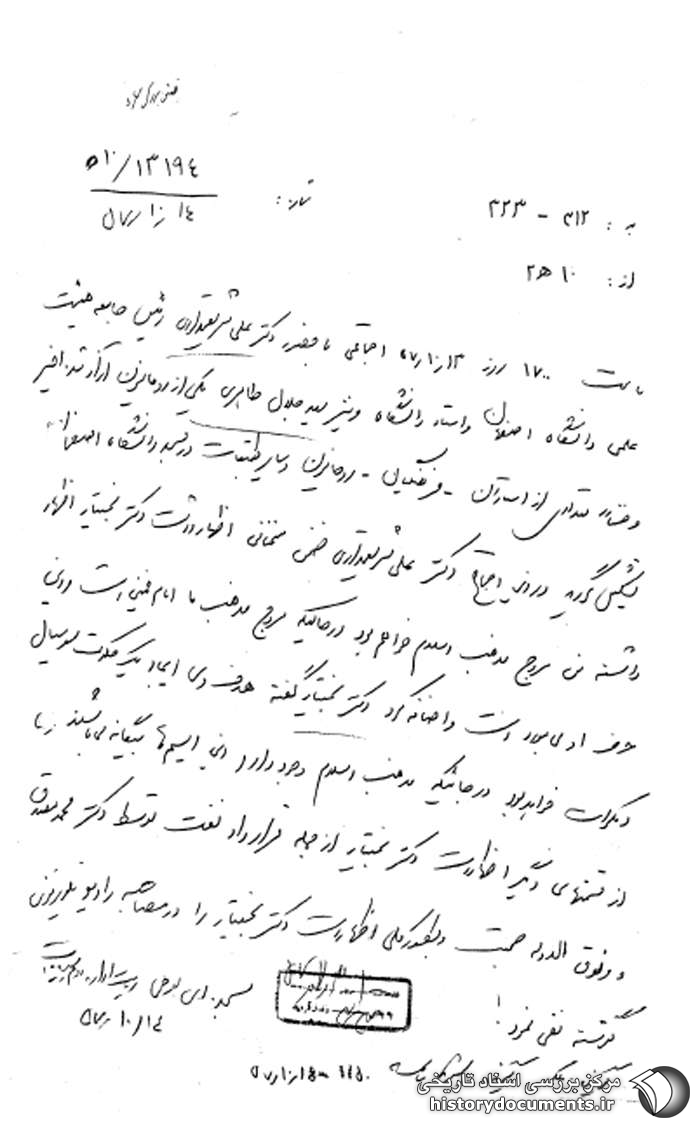 به : ۳۱۲ - ۳۲۳
از : ۱۰ ه‍ ۲
۱۰ ه‍/۱۳۱۹۴
۱۴ /۱۰ /۵۷
ساعت ۱۷۰۰ روز ۱۳ /۱۰ /۵۷ اجتماعی با حضور دکتر علی شریعتمداری رئیس جامعه هیئت
علمی دانشگاه اصفهان و استاد دانشگاه و نیز سید جلال طاهری یکی از روحانیون آزاد شده اخیر
و تعدادی از استادان - فرهنگیان - روحانیون و سایر طبقات در مسجد دانشگاه اصفهان
تشکیل گردید در این اجتماع دکتر علی شریعتمداری ضمن سخنانی اظهار داشت دکتر بختیار اظهار
داشته من مروج مذهب اسلام خواهم بود در حالیکه مروج مذهب ما امام خمینی است و این
حرف او بی مورد است و اضافه کرد دکتر بختیار گفته هدف وی ایجاد یک حکومت سوسیال
دمکرات خواهد بود در حالیکه مذهب اسلام وجود دارد این ایسم ها بیگانه می باشند
از قسمتهای دیگر اظهارات دکتر بختیار از جمله قرارداد نفت توسط دکتر محمد مصدق
و وثوق الدوله صحبت و بطور کلی اظهارات دکتر بختیار را در مصاحبه رادیو تلویزیونی
گذشته نفی نمود!
۱۴ /۱۰ /۵۷
مرکز بررسی اسناد تاریخی
historydocuments.ir